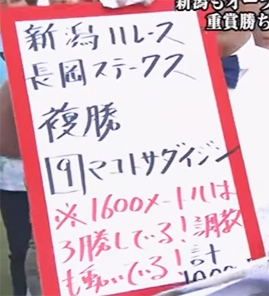 新潟もオー
重賞勝ち
新潟11レース
長岡ステークス
複勝
9 マコトサダイジン
※1600メートルは
3勝している!調教
も動いている!計